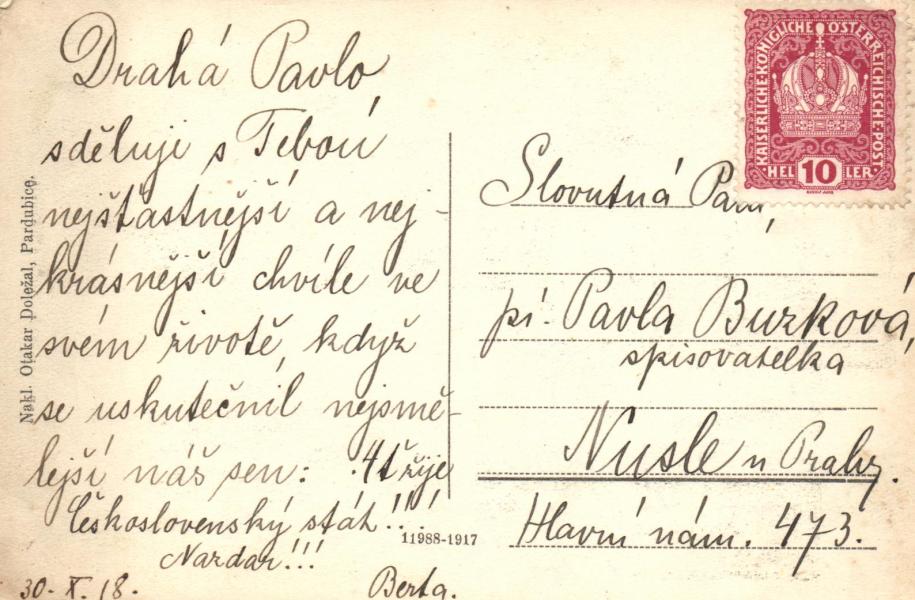 Drahá Pavlo,
sděluji s Tebou
nejšťastnější a nej-
krásnější chvíle ve
svém životě, když
se uskutečnil nejsmě-
lejší náš sen: žije
Československý stát!!!
Nazdar!!!
30. X. 18. Berta.
Nakl. Otakar Doležal, Pardubice.
11988-1917
KAISERLICHE·KÖNIGLICHE ÖSTERREICHISCHE·POST
HELLER
10
Slovutná Paní,
pí. Pavla Buzková,
spisovatelka
Nusle u Prahy.
Hlavní nám. 473.